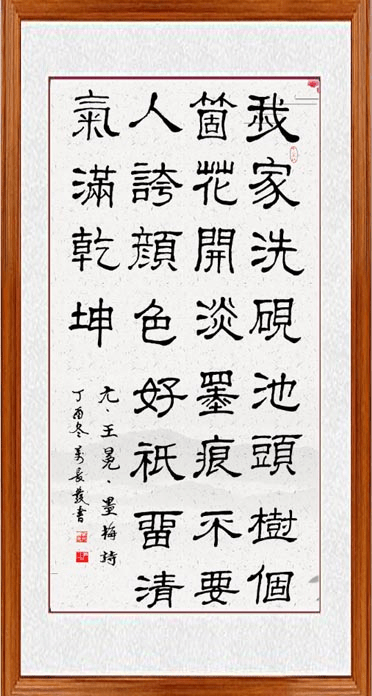 我家洗硯池頭樹個
箇花開淡墨痕不要
人誇顏色好祇畱清
氣滿乾坤
元、王冕、墨梅詩
丁酉冬萬長發書